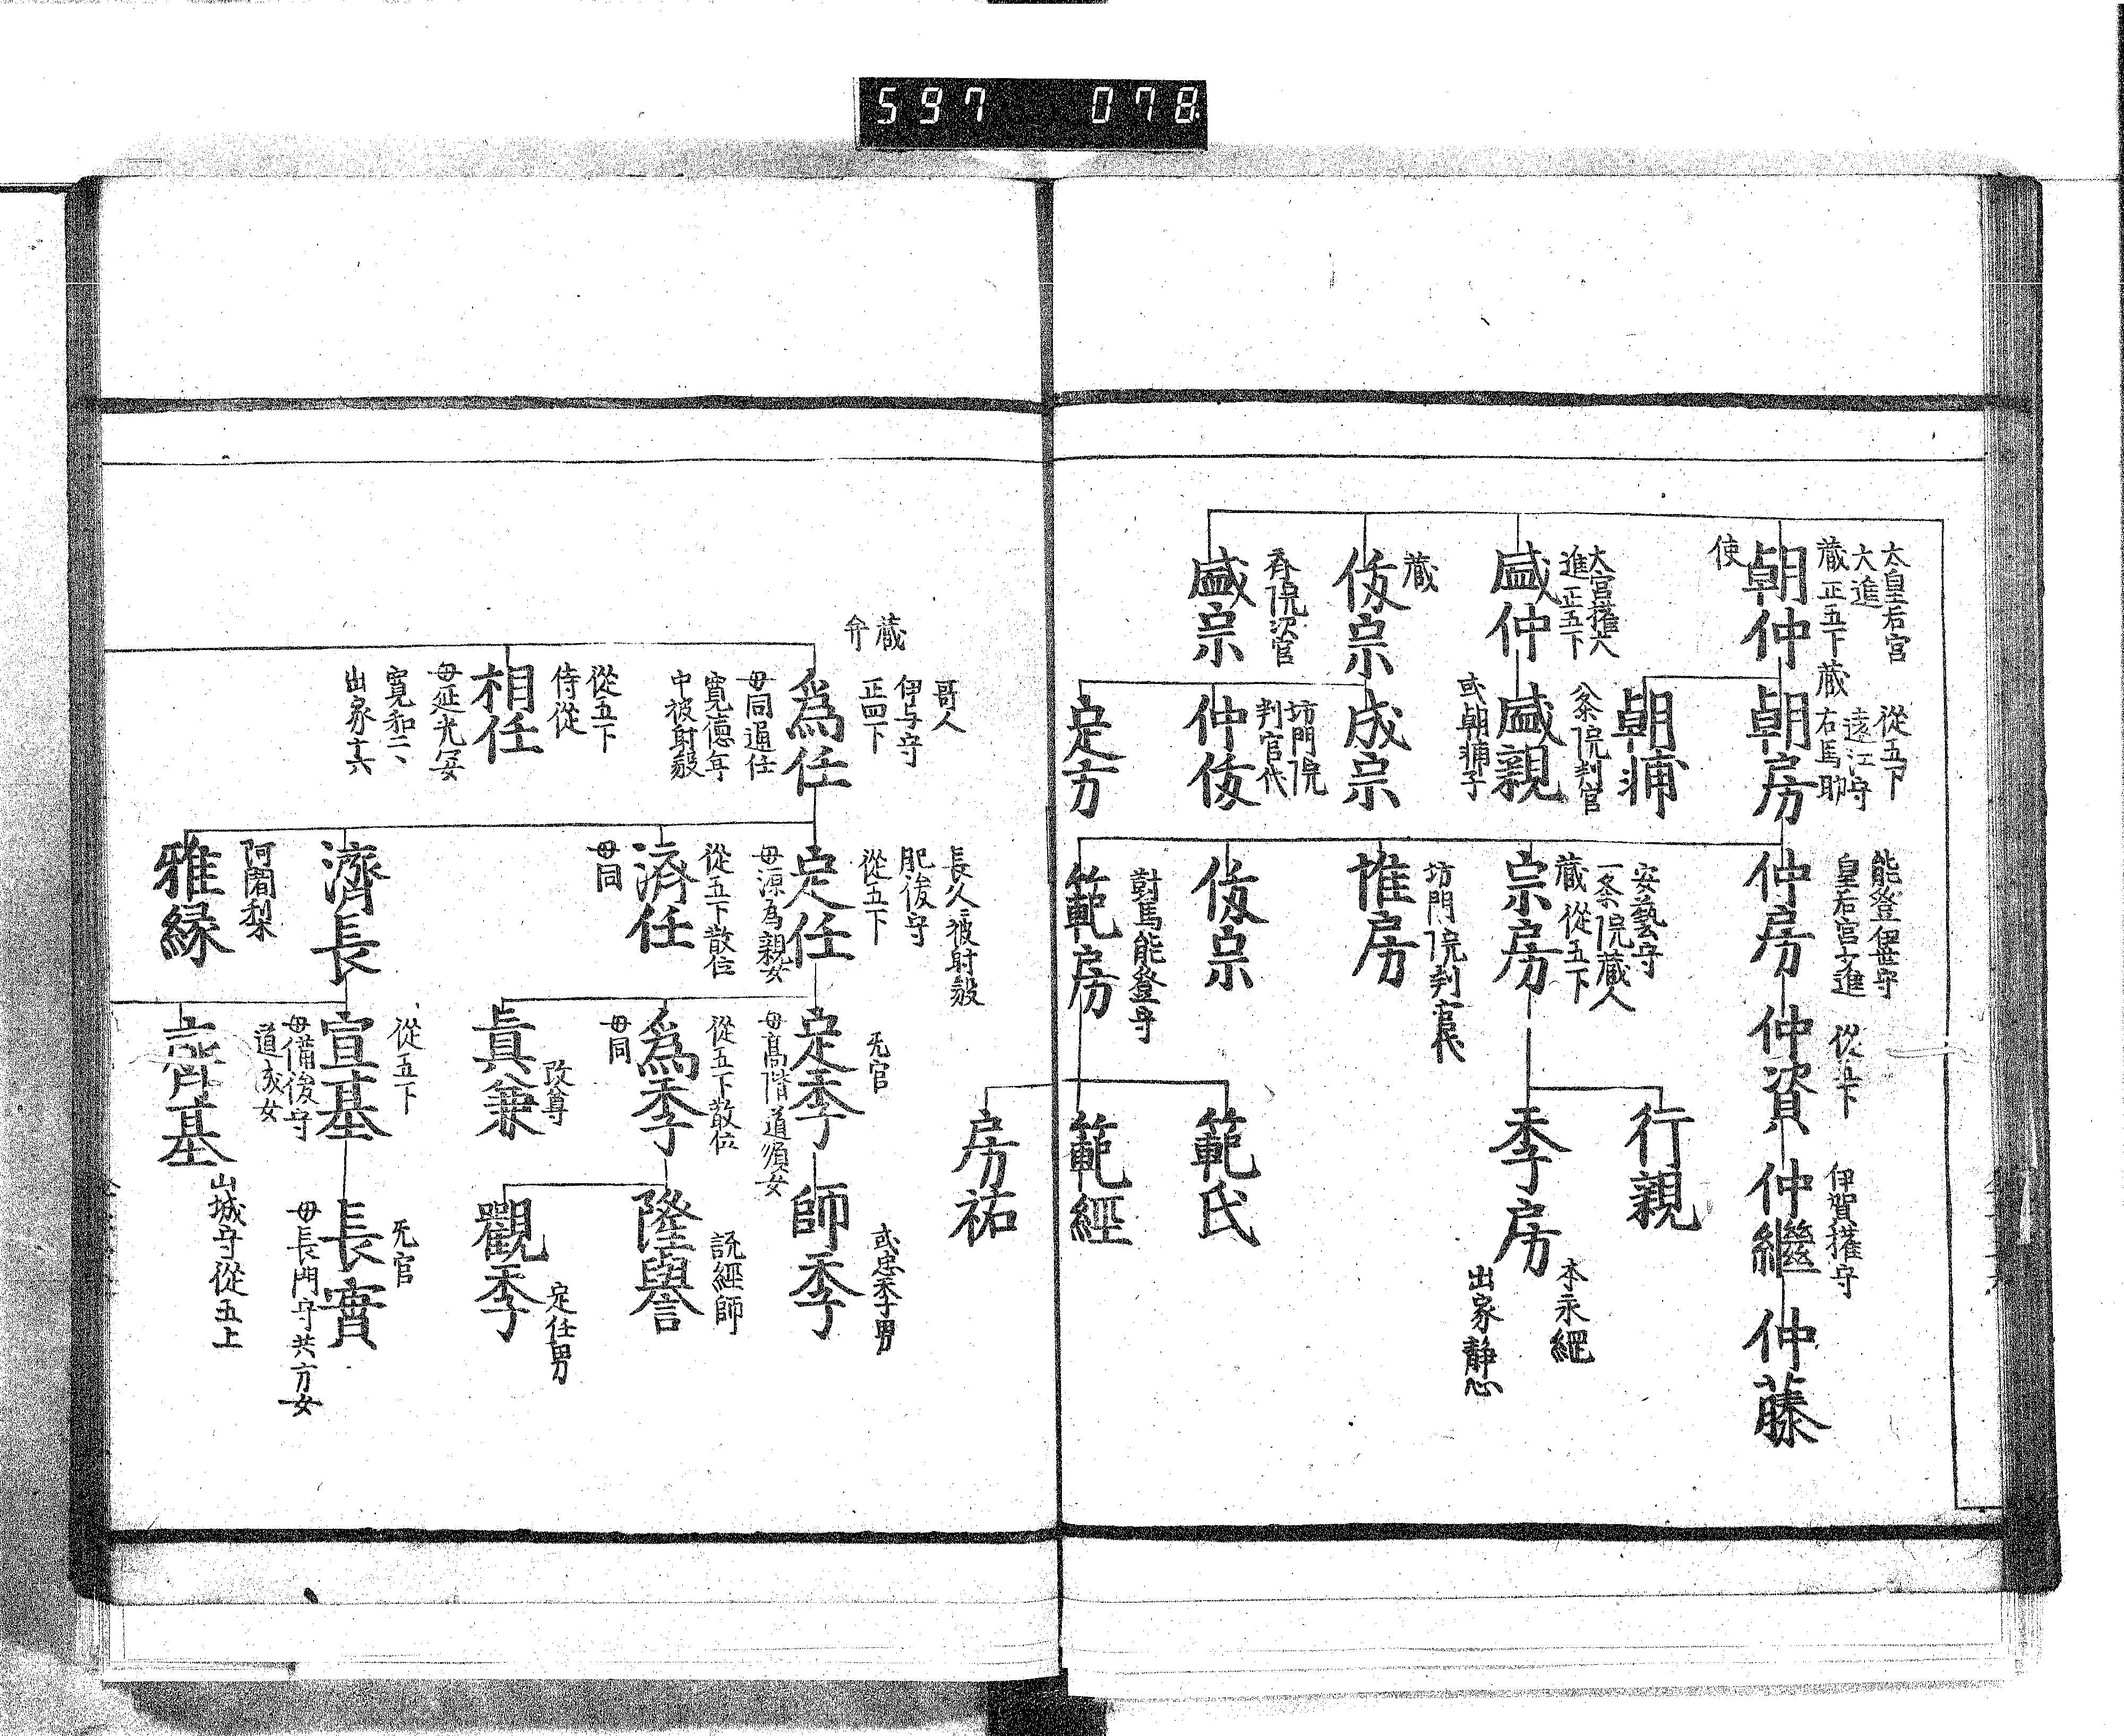 597 078
太皇后宮
大進
蔵正五下
朝仲
使
從五下
遠江守
蔵右馬助
朝房
朝輔
能登伊世守
皇后宮大進
仲房
從五下
仲資
伊賀權守
仲繼
仲藤
大宮權大
進正五下
盛仲
八条院判官
盛親
或朝輔子
安藝守
一条院蔵人
蔵從五下
宗房
行親
季房
本永經
出家静心
蔵
俊宗
成宗
坊門院判官代
惟房
斉院次官
盛宗
坊門院
判官代
仲俊
俊宗
範氏
定方
對馬能登守
範房
範經
房祐
蔵
弁
哥人
伊与守
正四下
爲任
母同通任
寛德年
中被射殺
長久二被射殺
肥後守
從五下
定任
母源為親女
旡官
定季
母髙階道順女
或忠季男
師季
從五下散位
済任
母同
從五下散位
爲季
母同
読經師
隆譽
改尊
眞兼
定任男
觀季
從五下
侍從
相任
母延光女
寛和二、
出家十六
濟長
從五下
宣基
母備後守
道成女
旡官
長實
母長門守共方女
阿闍梨
雅縁
齊基
山城守從五上